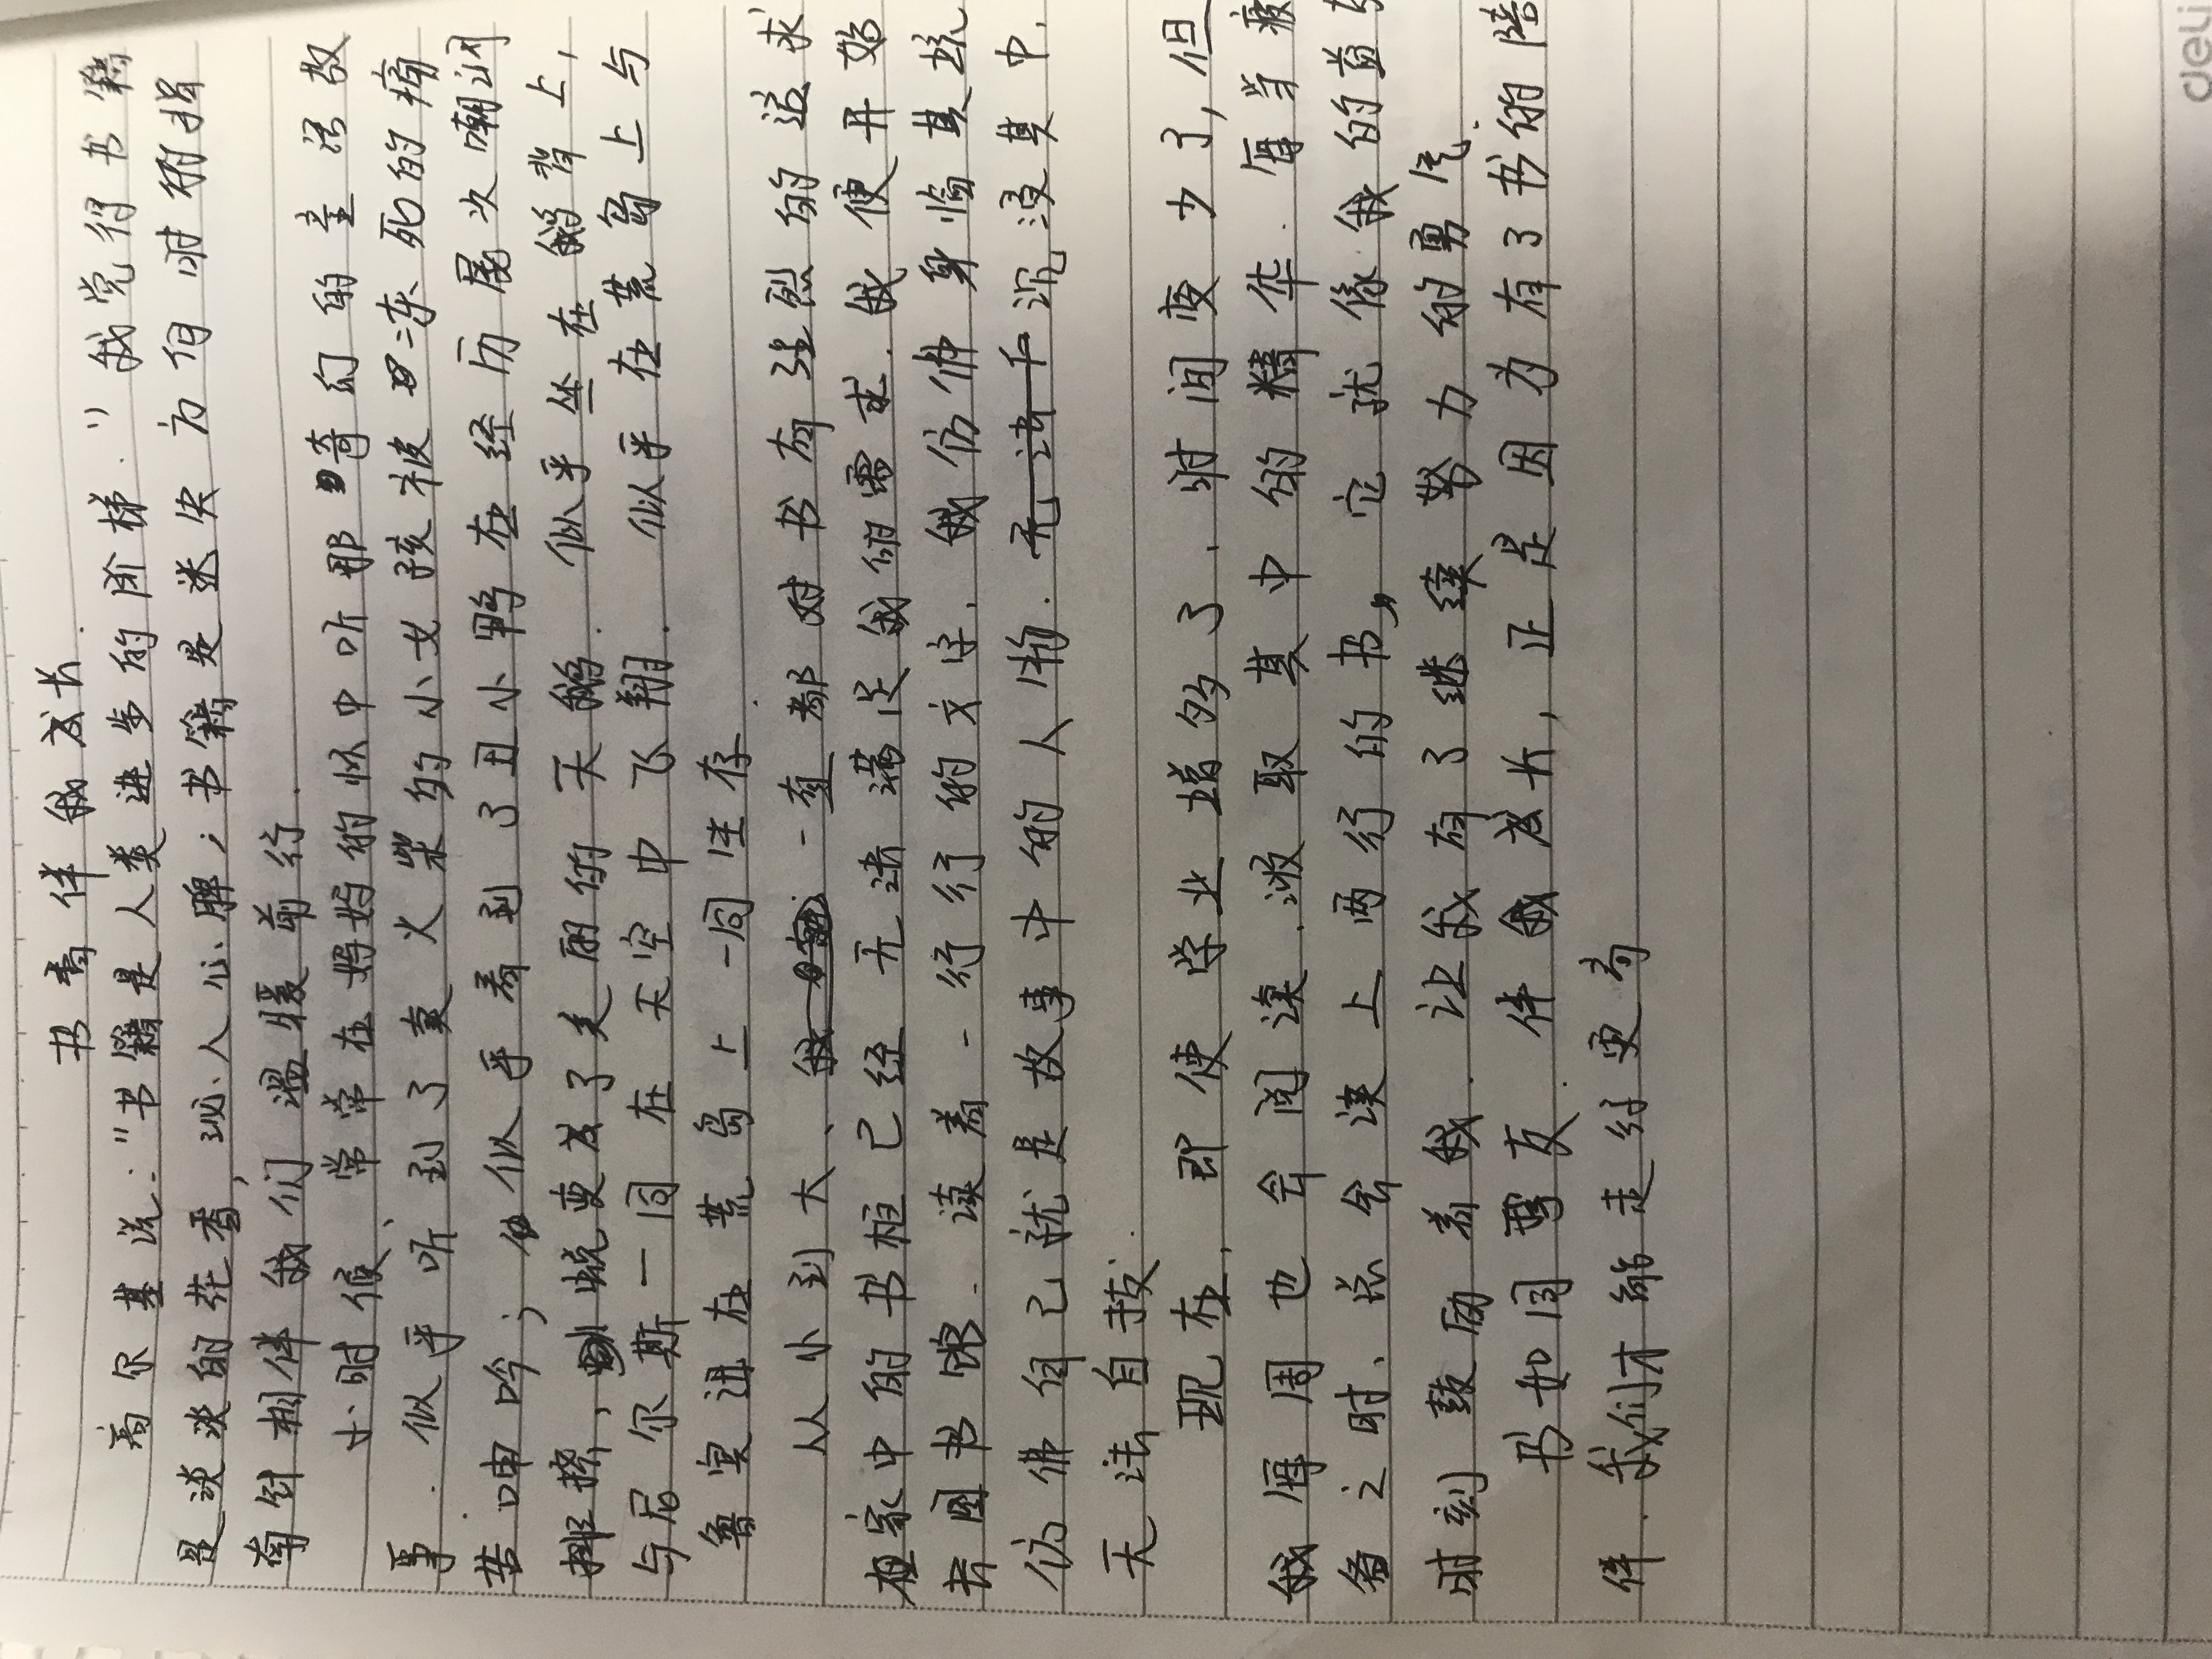 书香伴我成长
高尔基说:"书籍是人类进步的阶梯."我觉得书籍
是淡淡的花香,沁人心脾;书籍是迷失方向时的指
南针相伴我们温暖前行.
小时候、常常在妈妈的怀中听那奇幻的童话故
事.似乎听到了卖火柴的小女孩被冻死的痛
苦呻吟;似乎看到了丑小鸭在经历屡次嘲讽
排挤,蜕变成了美丽的天鹅.似乎坐在鹅背上,
与尼尔斯一同在天空中飞翔.似乎在荒岛上与
鲁宾逊在荒岛上一同生存.
从小到大、一直都对书有强烈的追求
在家中的书柜已经无法满足我的需求.我便开始
去图书馆.读着一行行的文字.我仿佛身临其境
仿佛自己就是故事中的人物.沉浸其中.
无法自拔.
现在,即使学业增多了.时间变少了,但
我每周也会阅读.汲取其中的精华.每当疲
惫之时、总会读上两行的书,它就像我的益
时刻鼓励着我.让我有了继续努力的勇气.
书如同雪友.伴我成长,正是因为有了书的陪
伴.我们才能走得更有
deli